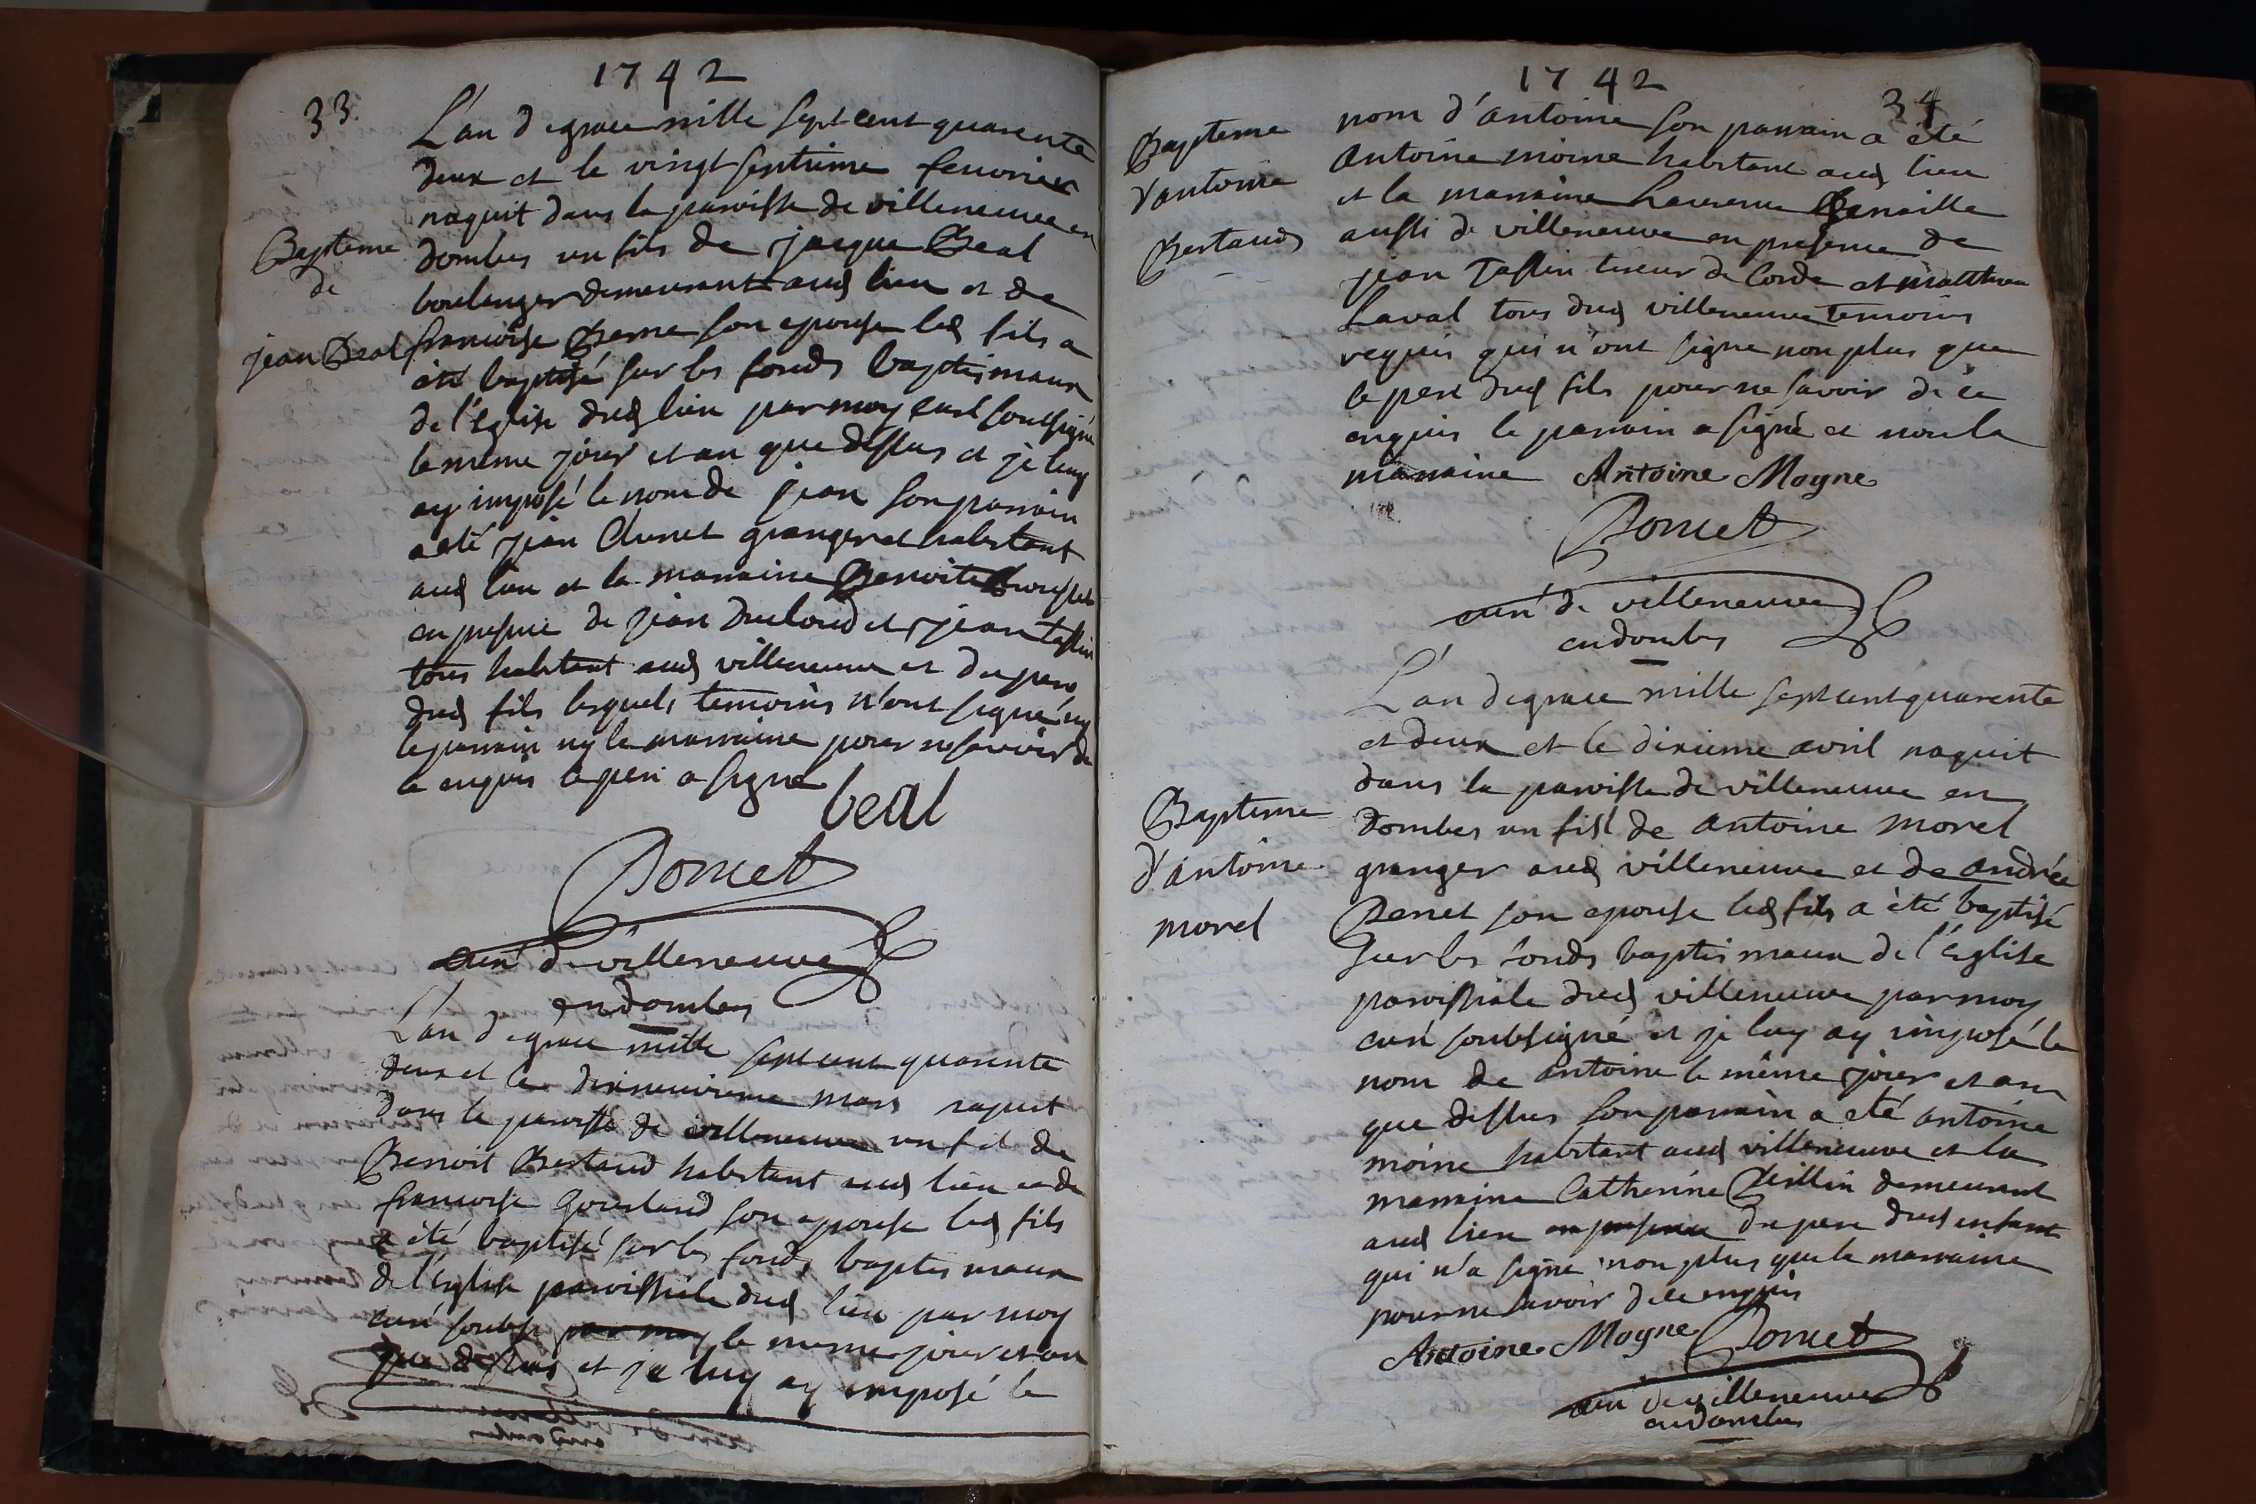 1742
33.
L'an de grace mille sept cent quarente
deux et le vingt septieme fevrier
naquit dans la paroisse de villeneuve en
Bapteme
de
jean Beal
dombes un fils de jacque Beal
boulenger demeurant aud lieu et de
francoise Berne son epouse led fils a
été baptisé sur les fonds baptismaux
de l'église dud lieu par moy curé soussigné
le même jour et an que dessus et je luy
ay imposé le nom de jean son parrain
a été jean Chanet granger et habitant
aud lieu et la marraine Benoite
en presence de jean Ducloud et jean taffin
tous habitant aud villeneuve et du pere
dud fils lesquels temoins n'ont signé ny
le parrain ny la marraine pour ne savoir de
ce enquis le pere a signé
beal
Poncet
curé de villeneuve
en dombes
L'an de grace mille sept cent quarente
deux et le dixneuvieme mars naquit
dans la paroisse de villeneuve un fils de
Benoit Bertaud habitant aud lieu et de
francoise Gourland son epouse led fils
a été baptisé sur les fonds baptismaux
de l'église parroissiale dud lieu par moy
curé soubs par moy le meme jour et an
que dessus et je luy ay imposé le
1742
34
Bapteme
d'antoine
Bertaud
nom d'antoine son parrain a été
antoine moine habitant aud lieu
et la marraine Laurence Benaille
aussi de villeneuve en presence de
jean Taffin tireur de Corde et matthieu
Laval tous dud villeneuve temoins
requis qui n'ont signe non plus que
le pere dud fils pour ne savoir de ce
enquis le parrain a signé et non la
marraine Antoine Moyne
Poncet
curé de villeneuve
en dombes
L'an de grace mille sept cent quarente
et deux et le dixieme avril naquit
dans la paroisse de villeneuve en
Bapteme
d'antoine
morel
dombes un fils de antoine morel
granger aud villeneuve et de andrée
Benet son epouse led fils a été baptisé
sur les fonds baptismaux de l'église
paroissiale dud villeneuve par moy
curé soubsigné et je luy ay imposé le
nom de antoine le même jour et an
que dessus son parrain a été antoine
moine habitant aud villeneuve et la
marraine Catherine demeurant
aud lieu en presence du pere dud enfant
qui n'a signe non plus que la marraine
pour ne savoir de ce enquis
Antoine Moyne Poncet
curé de villeneuve
en dombes